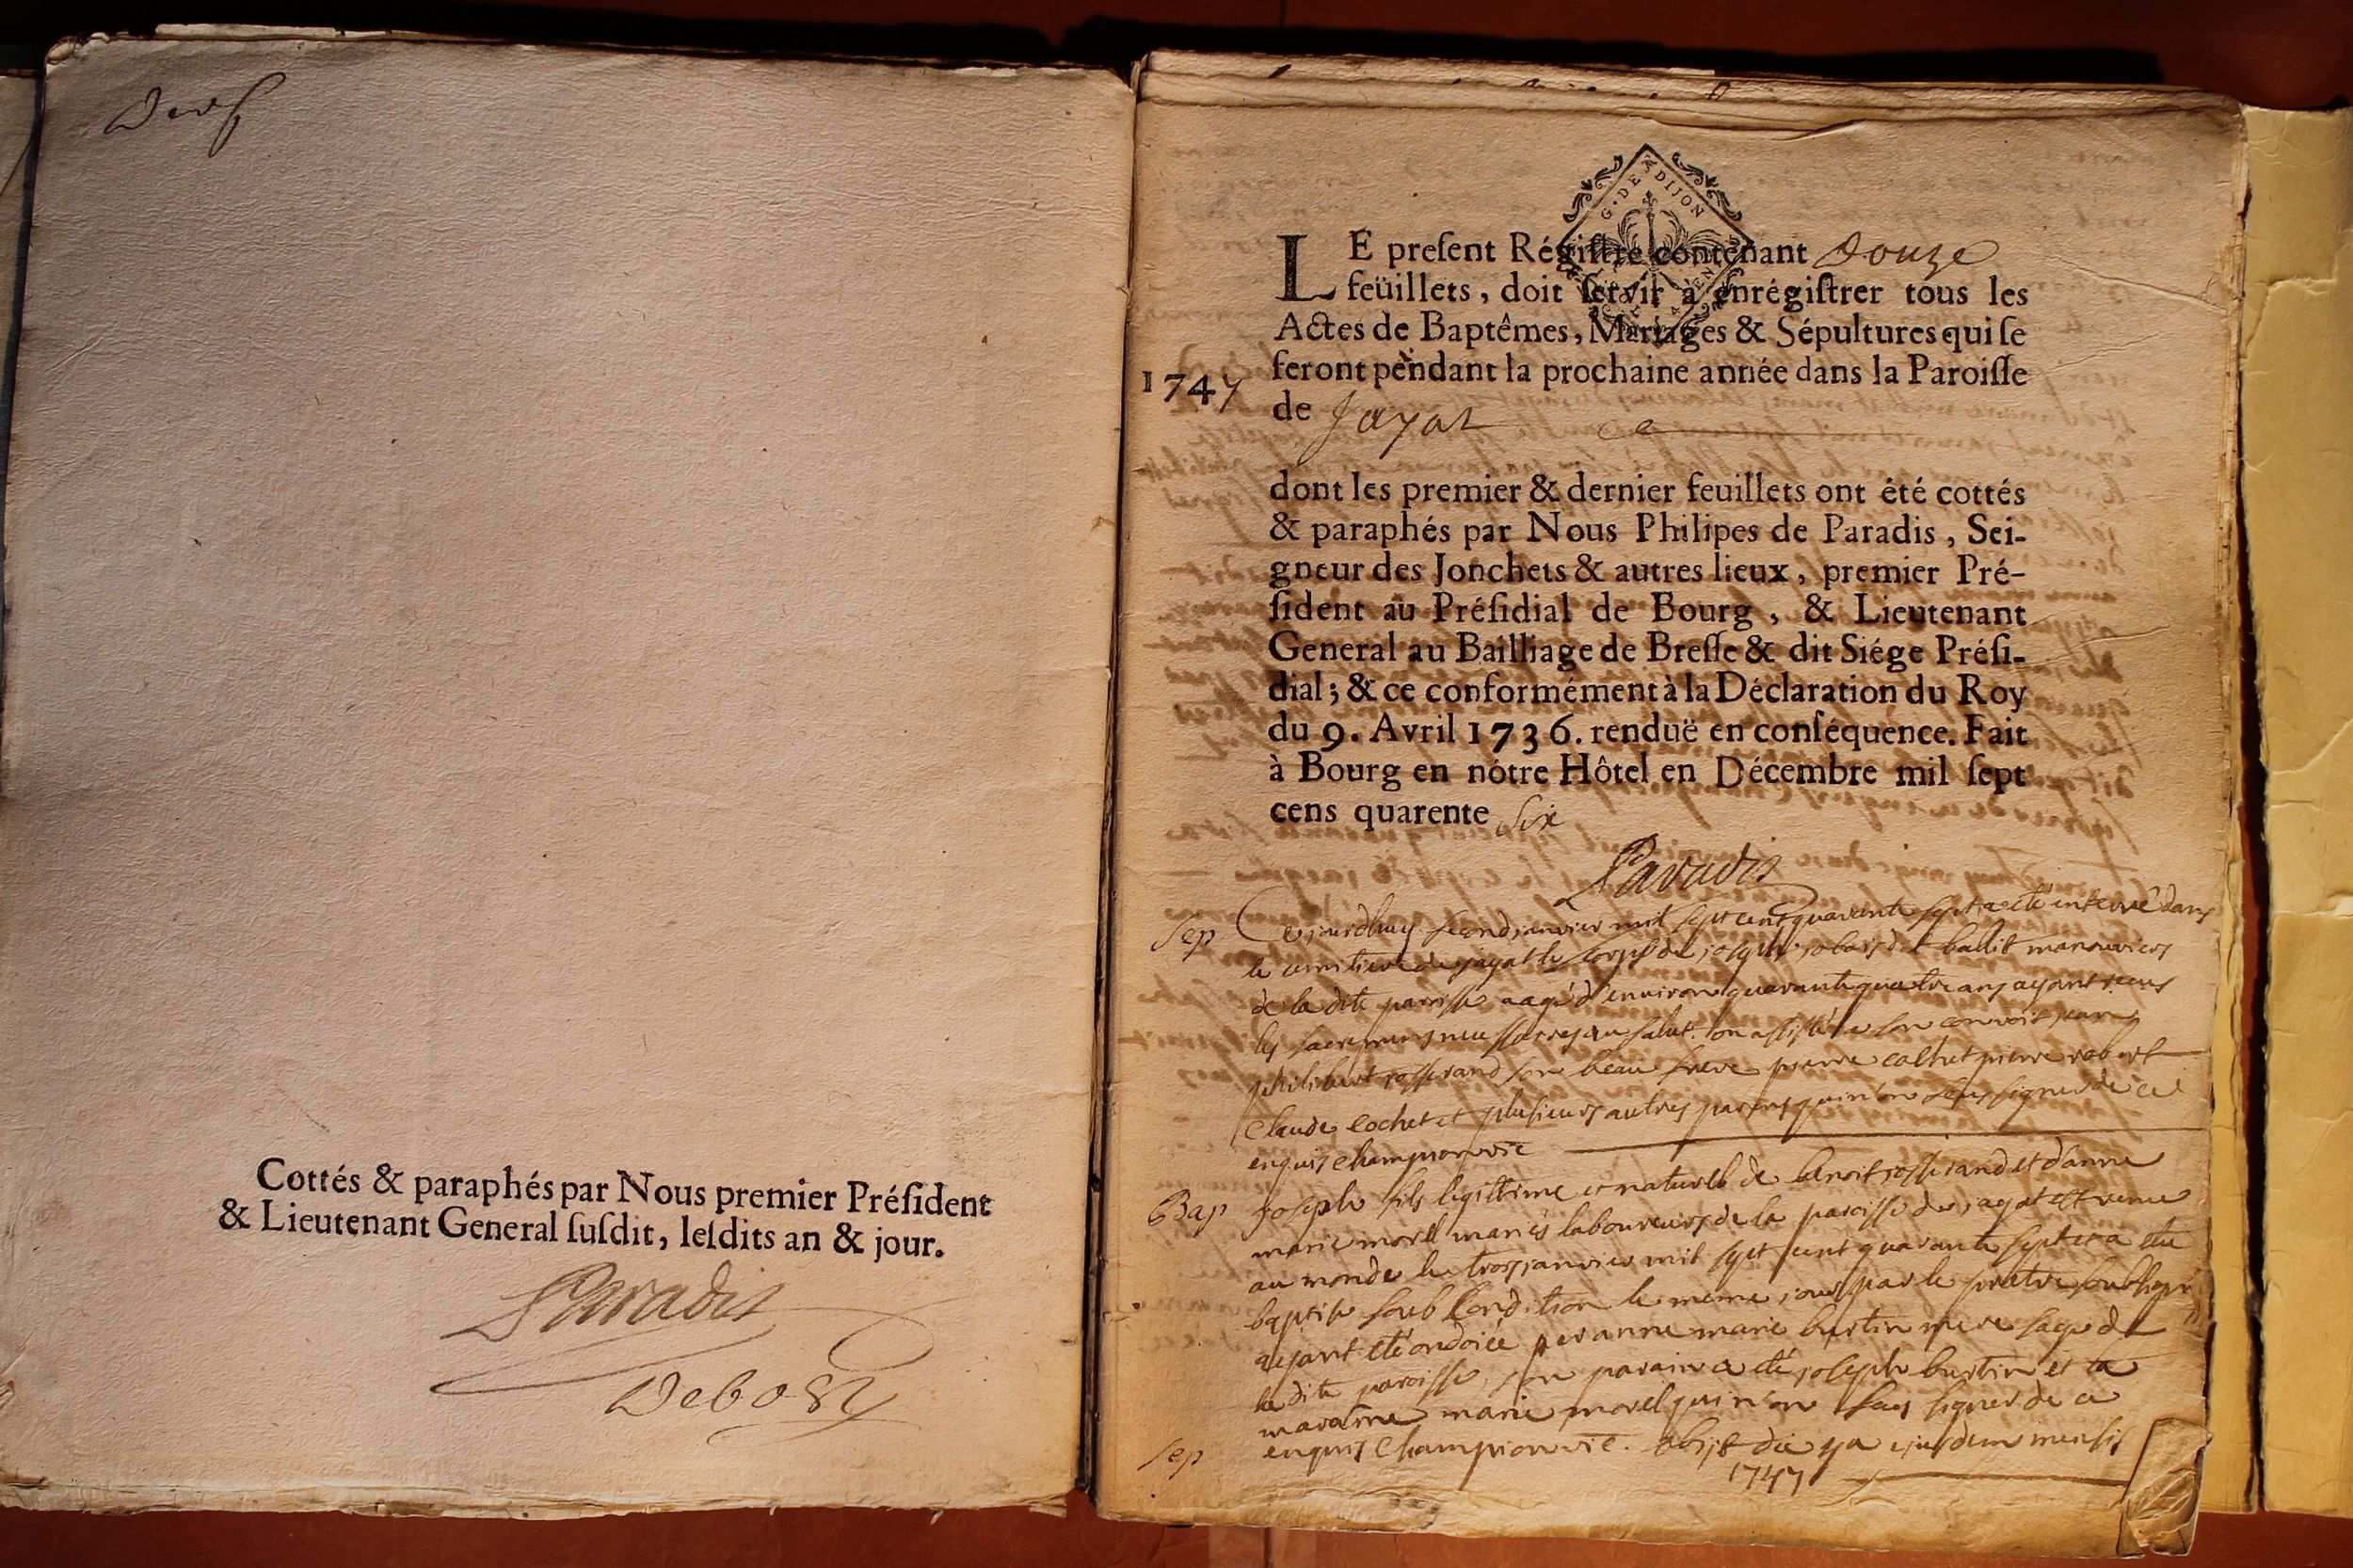 Cottés & paraphés par Nous premier Préſident
& Lieutenant General ſuſdit, leſdits an & jour.
Paradis
Debost
G. DE DIJON
LE preſent Régiſtre contenant douze
feüillets, doit ſervir à enrégiſtrer tous les
Actes de Baptêmes, Mariages & Sépultures qui ſe
feront pendant la prochaine année dans la Paroiſſe
1747
de Jayat
dont les premier & dernier feuillets ont été cottés
& paraphés par Nous Philipes de Paradis, Sei-
gneur des Jonchets & autres lieux, premier Pré-
ſident au Préſidial de Bourg, & Lieutenant
General au Bailliage de Breſſe & dit Siége Préſi-
dial; & ce conformément à la Déclaration du Roy
du 9. Avril 1736. renduë en conſéquence. Fait
à Bourg en nôtre Hôtel en Décembre mil ſept
cens quarente six
Paradis
Sep Cejourdhuy second janvier mil sept cent quarante sept a été enterré dans
le cimitiere de jayat le corps de joseph dit ballit manouvrier
de la dite parrisse aagé d'environ quarante quatre ans ayant reçus
les sacremens necessaires au salut. on assisté a son convoit jean
philibert josserand son beau frere pierre cochet pierre robert
Claude cochet et plusieurs autres parens qui n'on seus signer de ce
enquis Championvic
Bap joseph fils legittime et naturell de benoit josserand et d'anne
marie morell mariés laboureurs de la paroisse de jayat est venu
au monde le trois janvier mil sept cent quarante sept et a été
baptisé soub Condition le meme jour par le pretre soubsigné
ayant été ondoiée par anne marie burtin mere sage de
la dite paroisse, son parain a été joseph burtin et la
maraine marie morel qui n'on seus signer de ce
Sep enquis Championvic. obijt die 4a ejusdem mensis
1747